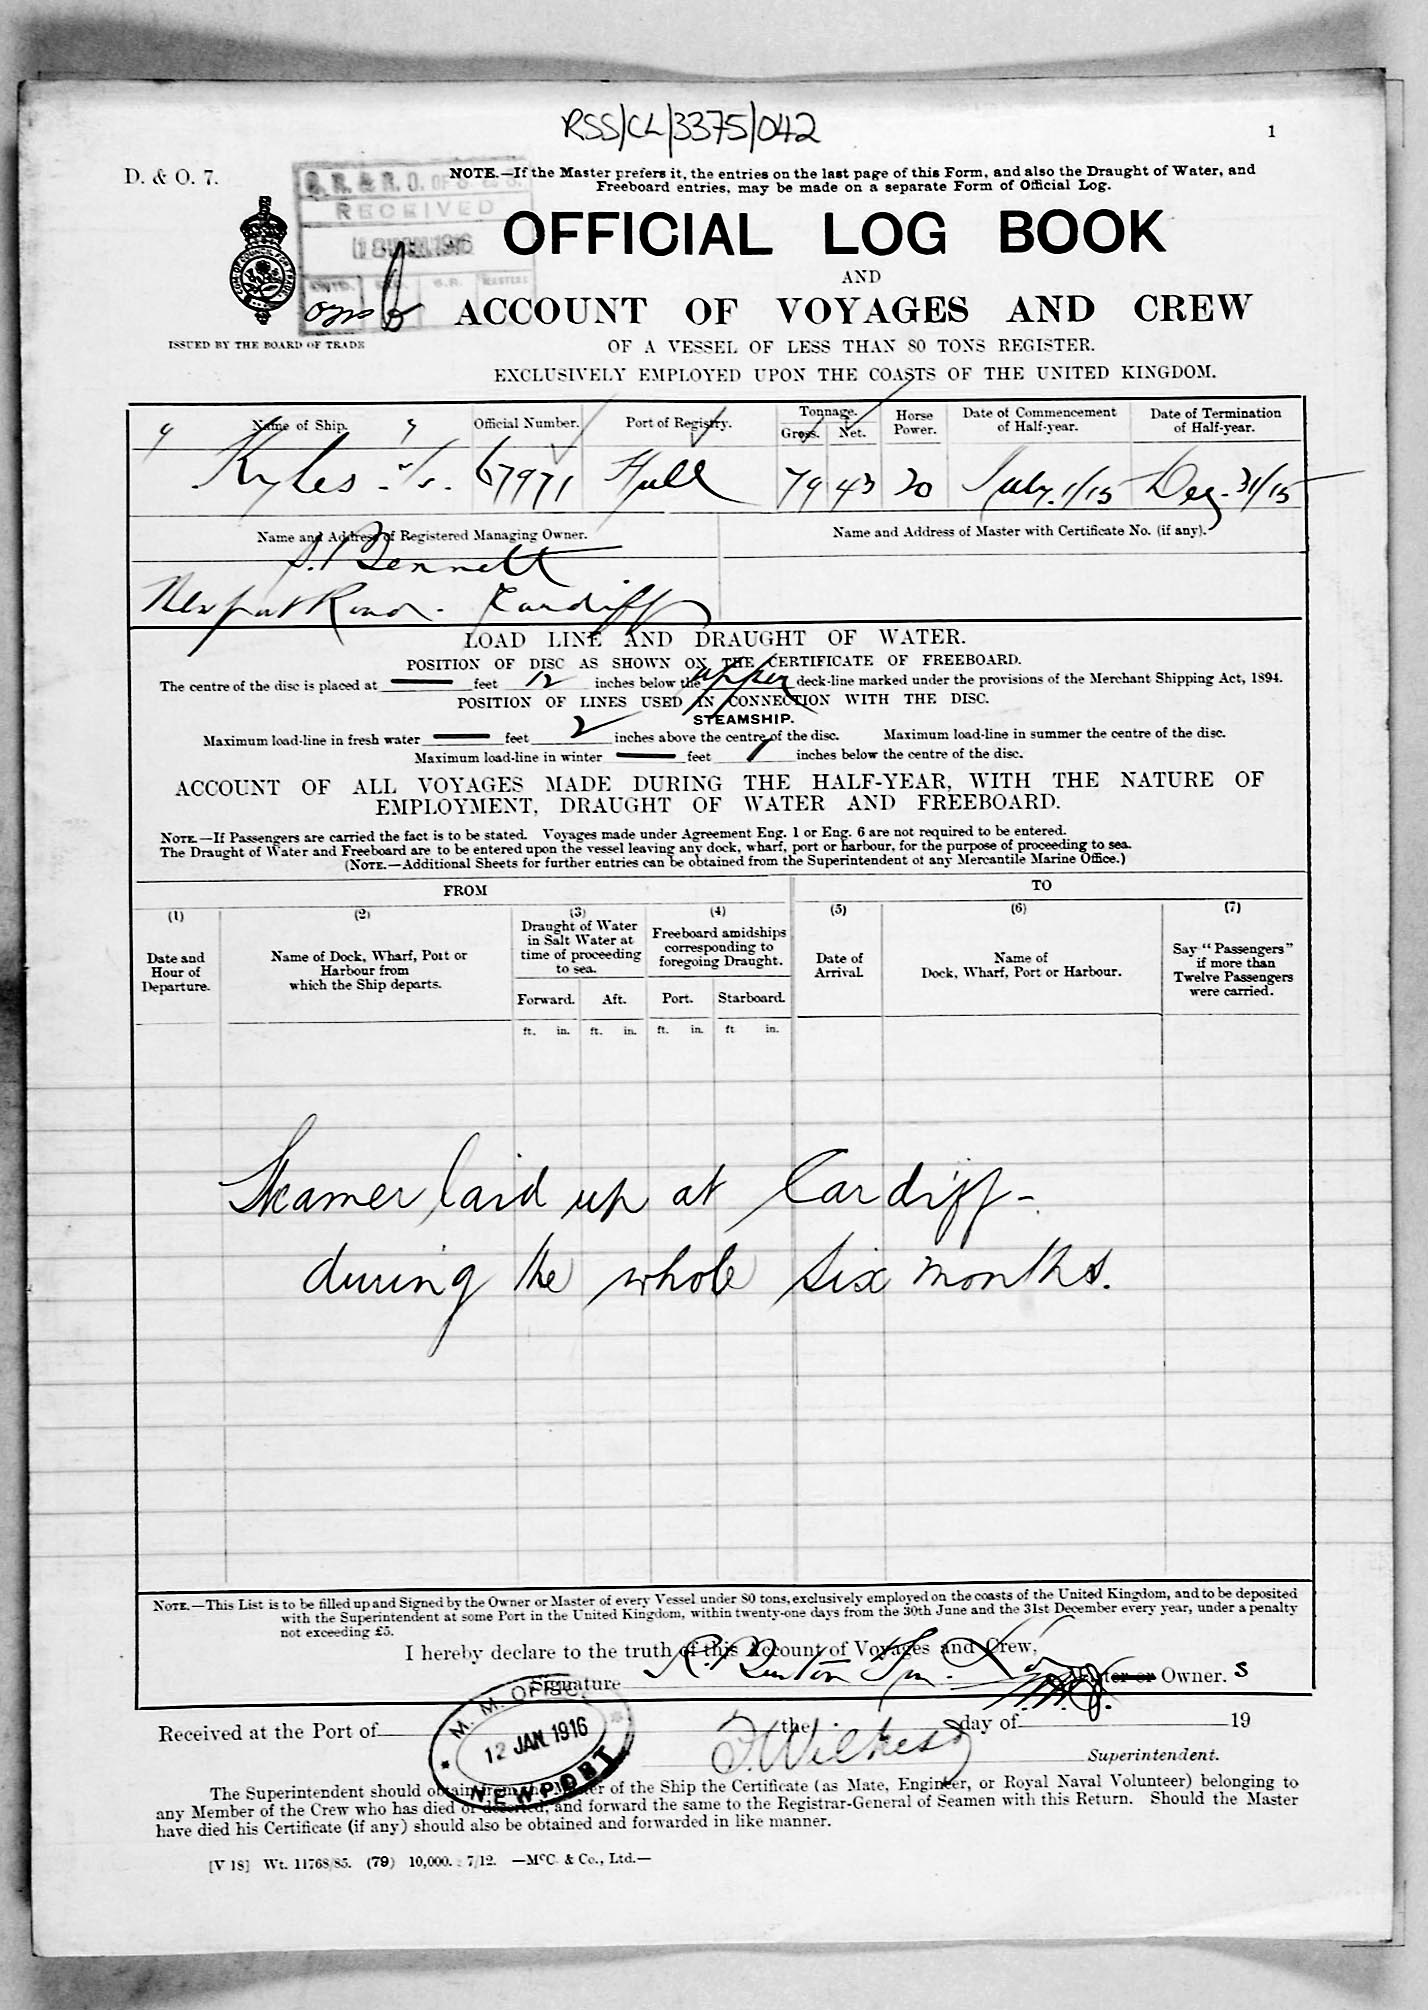 RSS/CL/3375/042
1
D. & O. 7.
NOTE.—If the Master prefers it, the entries on the last page of this Form, and also the Draught of Water, and
Freeboard entries, may be made on a separate Form of Official Log.
RECEIVED
OFFICIAL LOG BOOK
AND
ACCOUNT OF VOYAGES AND CREW
ISSUED BY THE BOARD OF TRADE
OF A VESSEL OF LESS THAN 80 TONS REGISTER.
EXCLUSIVELY EMPLOYED UPON THE COASTS OF THE UNITED KINGDOM.
Name of Ship. Official Number. Port of Registry. Tonnage. Gross. Net. Horse Power. Date of Commencement of Half-year. Date of Termination of Half-year.
"Kyles" s/s. 67971 Hull 79 43 20 July 1/15 Dec. 31/15
Name and Address of Registered Managing Owner. Name and Address of Master with Certificate No. (if any).
Bennett
Newport Road. Cardiff
LOAD LINE AND DRAUGHT OF WATER.
POSITION OF DISC AS SHOWN ON THE CERTIFICATE OF FREEBOARD.
The centre of the disc is placed at — feet 12 inches below the upper deck-line marked under the provisions of the Merchant Shipping Act, 1894.
POSITION OF LINES USED IN CONNECTION WITH THE DISC.
STEAMSHIP.
Maximum load-line in fresh water — feet 2 inches above the centre of the disc. Maximum load-line in summer the centre of the disc.
Maximum load-line in winter — feet 1 inches below the centre of the disc.
ACCOUNT OF ALL VOYAGES MADE DURING THE HALF-YEAR, WITH THE NATURE OF
EMPLOYMENT, DRAUGHT OF WATER AND FREEBOARD.
NOTE.—If Passengers are carried the fact is to be stated. Voyages made under Agreement Eng. 1 or Eng. 6 are not required to be entered.
The Draught of Water and Freeboard are to be entered upon the vessel leaving any dock, wharf, port or harbour, for the purpose of proceeding to sea.
(NOTE.—Additional Sheets for further entries can be obtained from the Superintendent of any Mercantile Marine Office.)
FROM TO
(1) (2) (3) (4) (5) (6) (7)
Date and Hour of Departure.
Name of Dock, Wharf, Port or Harbour from which the Ship departs.
Draught of Water in Salt Water at time of proceeding to sea.
Freeboard amidships corresponding to foregoing Draught.
Date of Arrival.
Name of Dock, Wharf, Port or Harbour.
Say "Passengers" if more than Twelve Passengers were carried.
Forward. Aft. Port. Starboard.
ft. in. ft. in. ft. in. ft in.
Steamer laid up at Cardiff -
during the whole six months.
NOTE.—This List is to be filled up and Signed by the Owner or Master of every Vessel under 80 tons, exclusively employed on the coasts of the United Kingdom, and to be deposited
with the Superintendent at some Port in the United Kingdom, within twenty-one days from the 30th June and the 31st December every year, under a penalty
not exceeding £5.
I hereby declare to the truth of this Account of Voyages and Crew,
Signature Owner. s
M. M. OFFICE.
12 JAN. 1916
NEWPORT
Received at the Port of the day of 19
F. Wilkes Superintendent.
The Superintendent should obtain from the Master of the Ship the Certificate (as Mate, Engineer, or Royal Naval Volunteer) belonging to
any Member of the Crew who has died or deserted, and forward the same to the Registrar-General of Seamen with this Return. Should the Master
have died his Certificate (if any) should also be obtained and forwarded in like manner.
[V 18] Wt. 11768/85. (79) 10,000. 7/12. —McC. & Co., Ltd.—